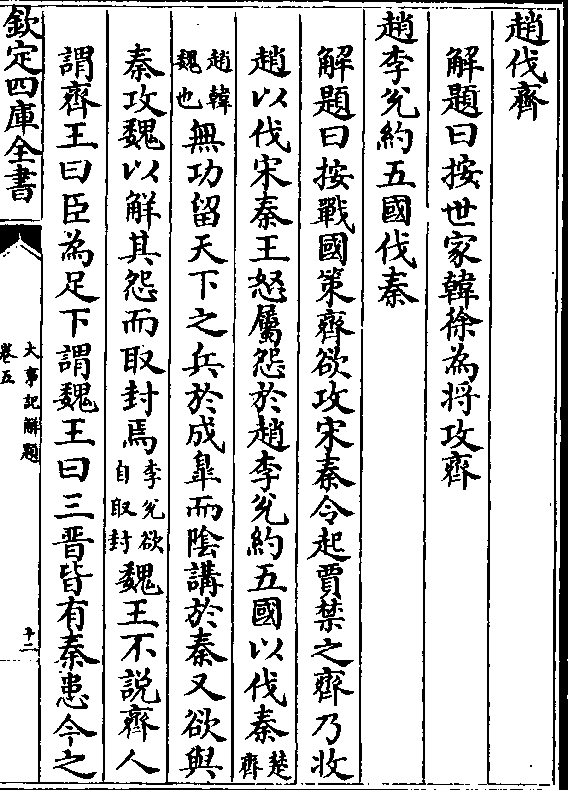 趙伐齊
解題曰按世家韓徐為将攻齊
趙李兊約五國伐秦
解題曰按戰國策齊欲攻宋秦令起賈禁之齊乃收
趙以伐宋秦王怒屬怨於趙李兊約五國以伐秦楚齊
趙韓魏也無功留天下之兵於成臯而陰講於秦又欲與
秦攻魏以解其怨而取封焉李兊欲自取封魏王不說齊人
謂齊王曰臣為足下謂魏王曰三晋皆有秦患今之
欽定四庫全書
大事記解題
卷五
十二